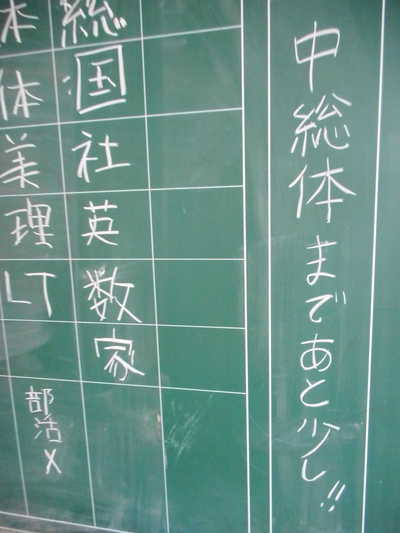 中総体まであと少し!!
総
国
社
英
数
家
体
美
理
LT
部活×